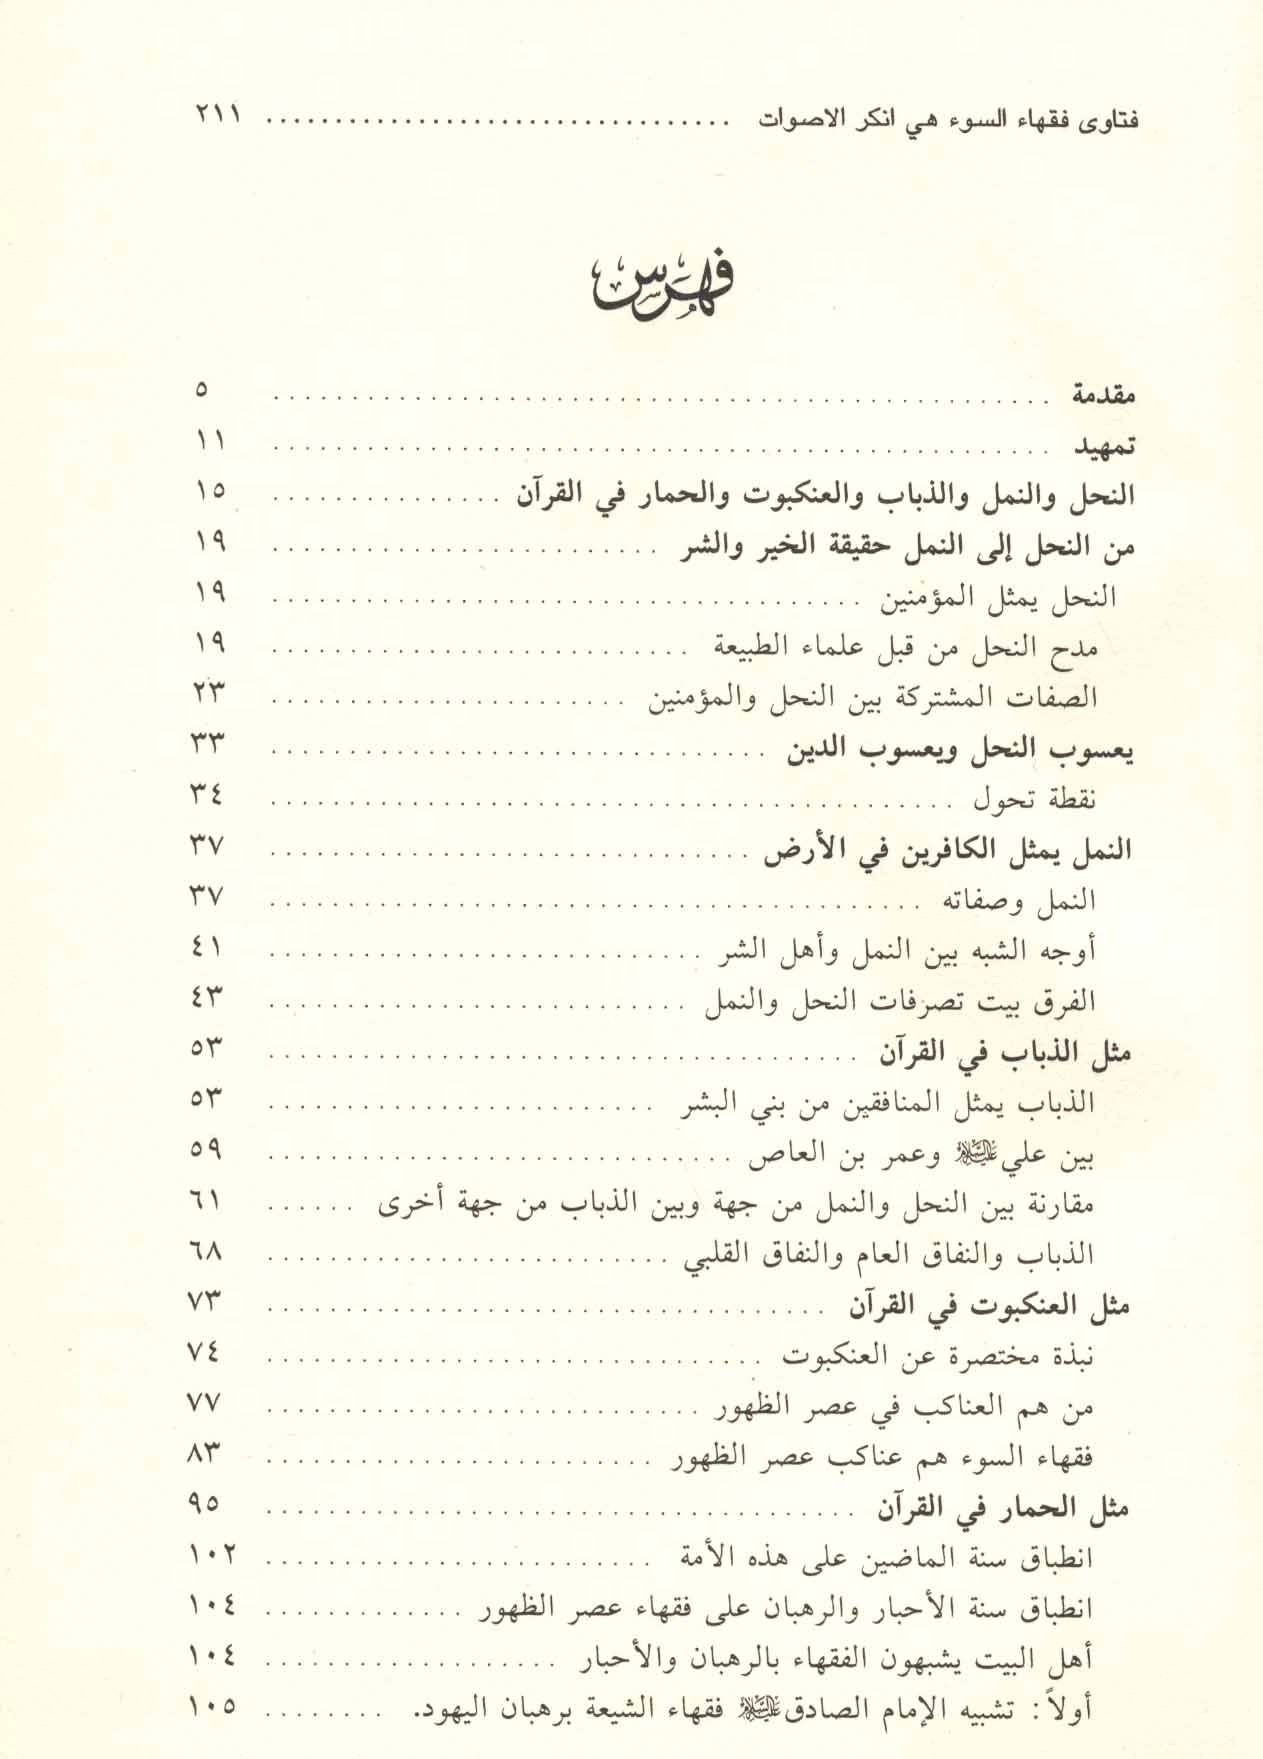 فتاوى فقهاء السوء هي انكر الاصوات ................................. ٢١١
فهرس
مقدمة ................................. ٥
تمهيد ................................. ١١
النحل والنمل والذباب والعنكبوت والحمار في القرآن ............ ١٥
من النحل إلى النمل حقيقة الخير والشر .................... ١٩
النحل يمثل المؤمنين ............................. ١٩
مدح النحل من قبل علماء الطبيعة ..................... ١٩
الصفات المشتركة بين النحل والمؤمنين .................. ٢٣
يعسوب النحل ويعسوب الدين ......................... ٣٣
نقطة تحول ................................. ٣٤
النمل يمثل الكافرين في الأرض ........................ ٣٧
النمل وصفاته ................................. ٣٧
أوجه الشبه بين النمل وأهل الشر ...................... ٤١
الفرق بيت تصرفات النحل والنمل ..................... ٤٣
مثل الذباب في القرآن ............................. ٥٣
الذباب يمثل المنافقين من بني البشر .................... ٥٣
بين علي عليه السلام وعمر بن العاص ....................... ٥٩
مقارنة بين النحل والنمل من جهة وبين الذباب من جهة أخرى ...... ٦١
الذباب والنفاق العام والنفاق القلبي .................... ٦٨
مثل العنكبوت في القرآن ............................ ٧٣
نبذة مختصرة عن العنكبوت ......................... ٧٤
من هم العناكب في عصر الظهور ...................... ٧٧
فقهاء السوء هم عناكب عصر الظهور .................... ٨٣
مثل الحمار في القرآن ............................. ٩٥
انطباق سنة الماضين على هذه الأمة .................... ١٠٢
انطباق سنة الأحبار والرهبان على فقهاء عصر الظهور .......... ١٠٤
أهل البيت يشبهون الفقهاء بالرهبان والأحبار ............... ١٠٤
أولاً: تشبيه الإمام الصادق عليه السلام فقهاء الشيعة برهبان اليهود. ........ ١٠٥